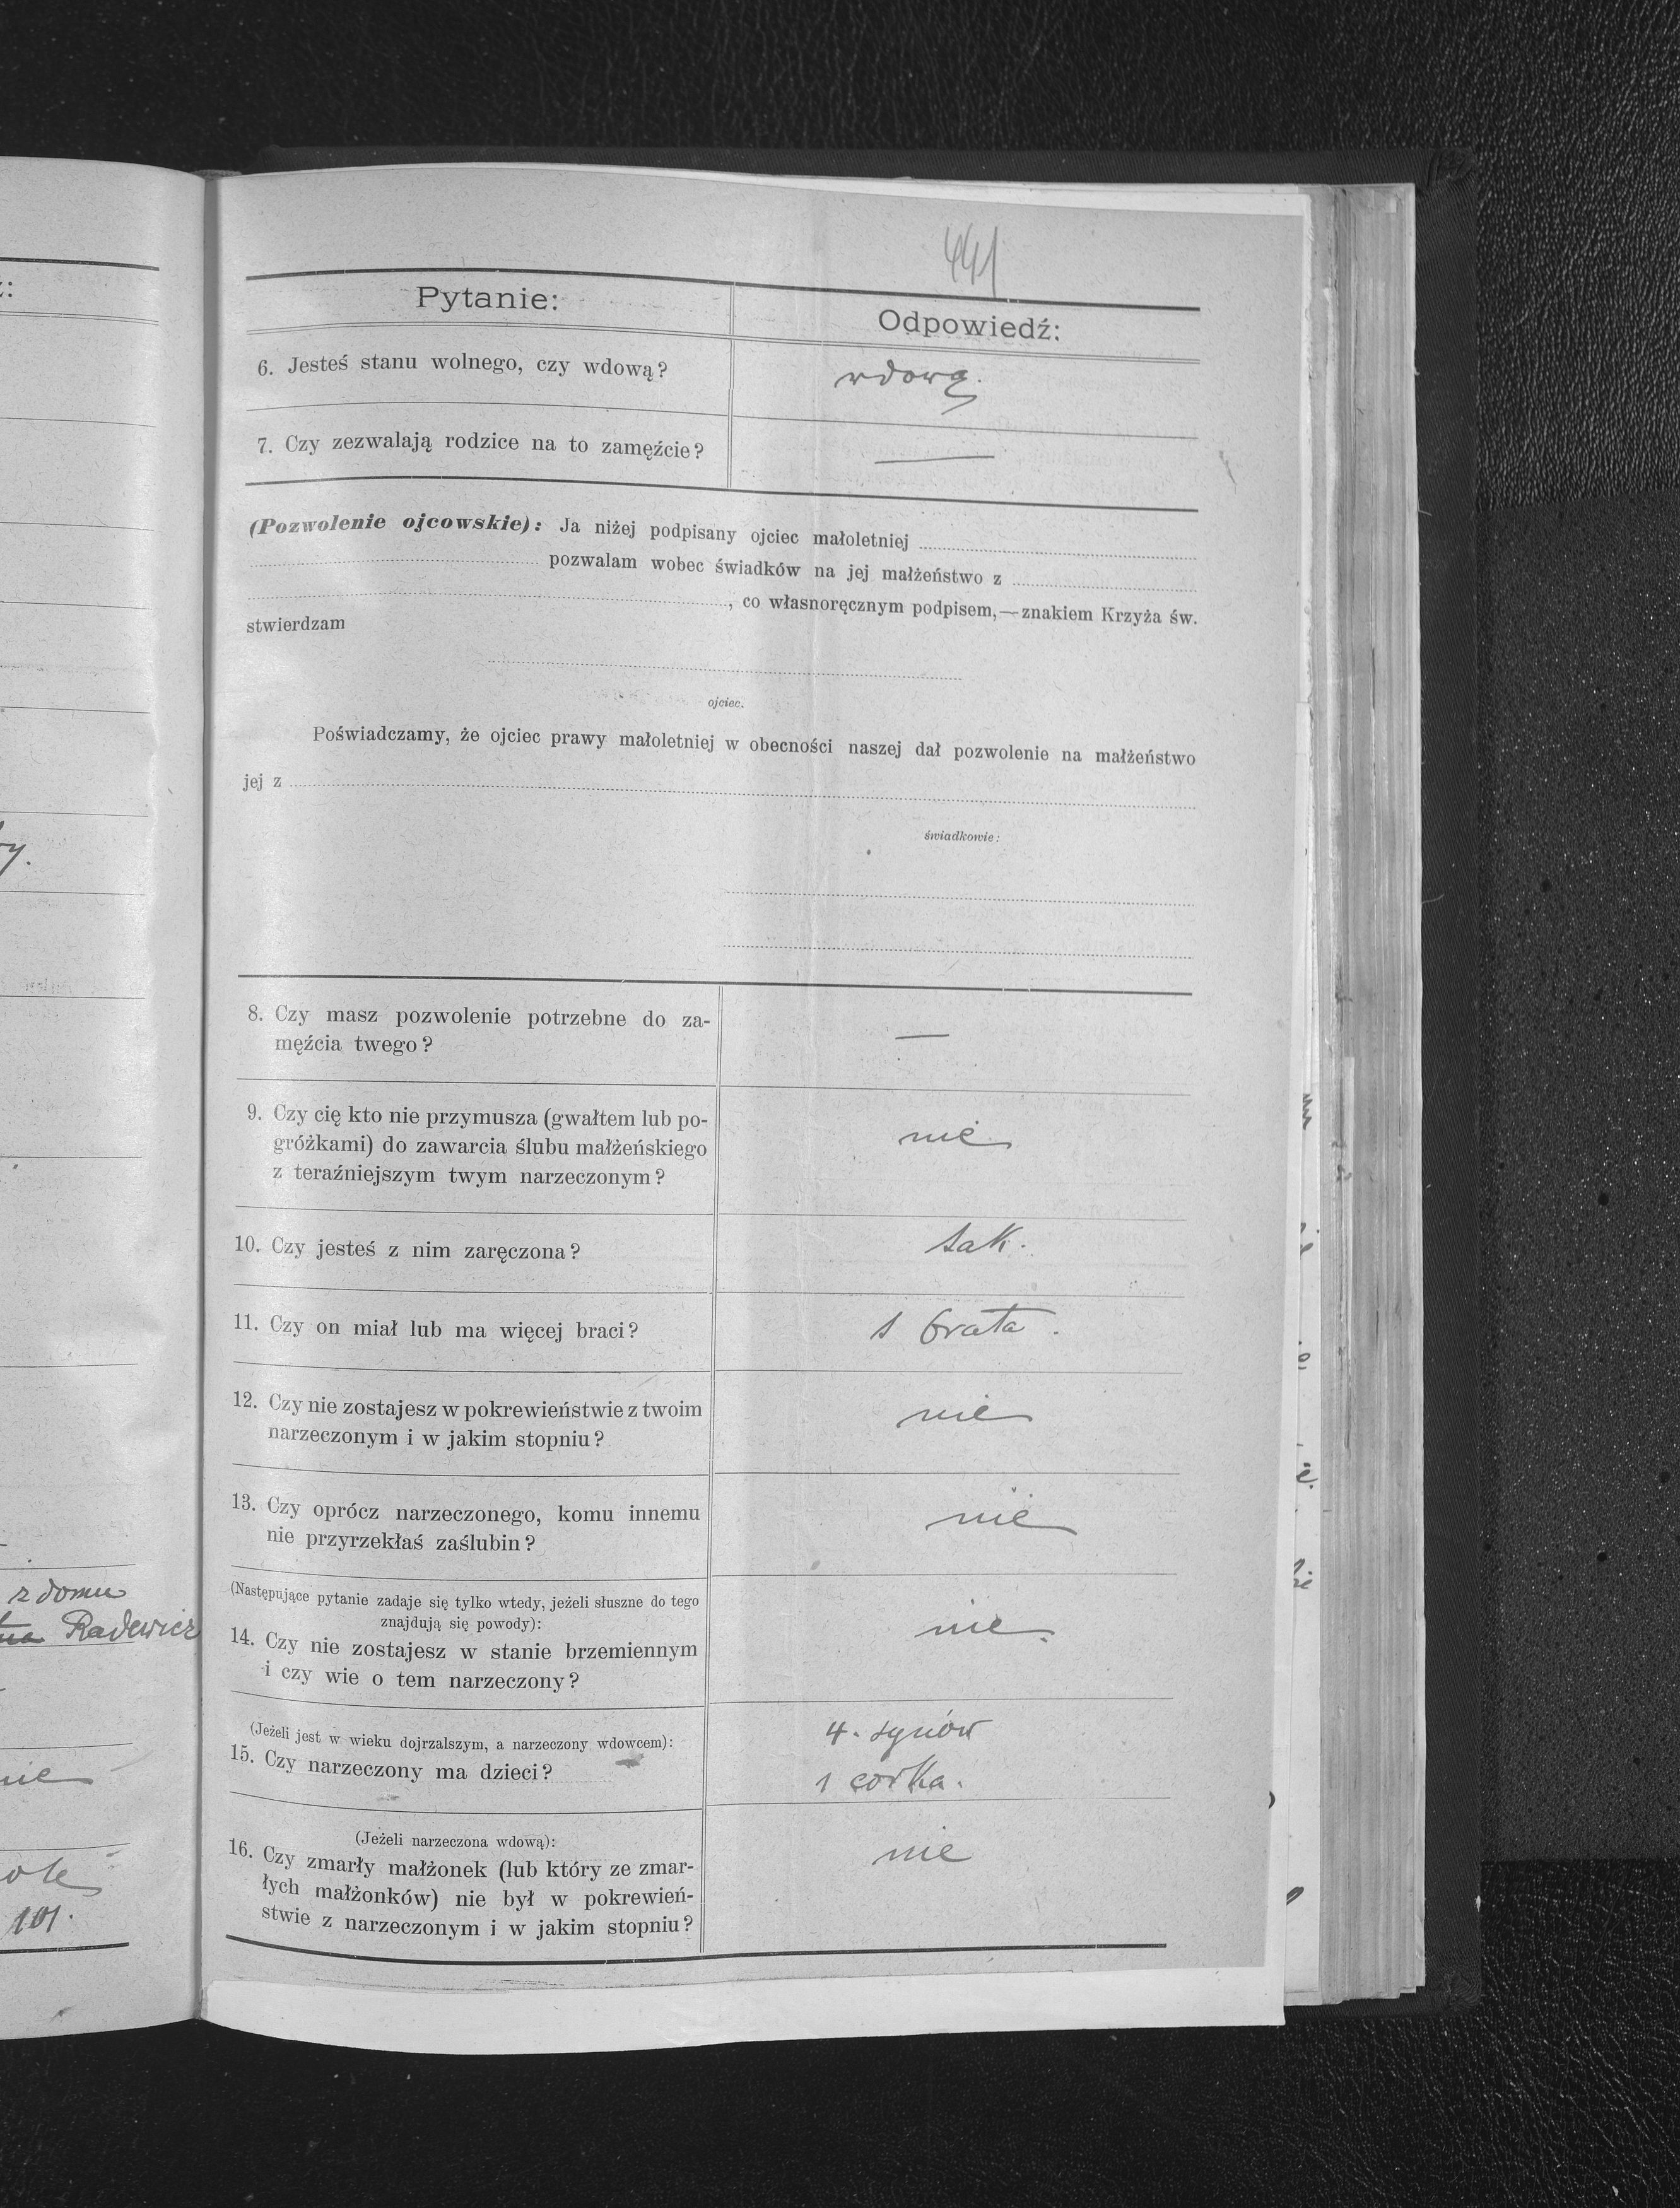 441
Pytanie:
Odpowiedź:
6. Jesteś stanu wolnego, czy wdową?
wdową.
7. Czy zezwalają rodzice na to zamęźcie?
—
(Pozwolenie ojcowskie): Ja niżej podpisany ojciec małoletniej
pozwalam wobec świadków na jej małżeństwo z
, co własnoręcznym podpisem,—znakiem Krzyża św.
stwierdzam
ojciec.
Poświadczamy, że ojciec prawy małoletniej w obecności naszej dał pozwolenie na małżeństwo
jej z
świadkowie:
8. Czy masz pozwolenie potrzebne do za-
męźcia twego?
—
9. Czy cię kto nie przymusza (gwałtem lub po-
gróżkami) do zawarcia ślubu małżeńskiego
z teraźniejszym twym narzeczonym?
nie
10. Czy jesteś z nim zaręczona?
tak.
11. Czy on miał lub ma więcej braci?
1 brata.
12. Czy nie zostajesz w pokrewieństwie z twoim
narzeczonym i w jakim stopniu?
nie
13. Czy oprócz narzeczonego, komu innemu
nie przyrzekłaś zaślubin?
nie
(Następujące pytanie zadaje się tylko wtedy, jeżeli słuszne do tego
znajdują się powody):
14. Czy nie zostajesz w stanie brzemiennym
i czy wie o tem narzeczony?
nie.
(Jeżeli jest w wieku dojrzalszym, a narzeczony wdowcem):
15. Czy narzeczony ma dzieci?
4. synów
1 corka.
(Jeżeli narzeczona wdową):
16. Czy zmarły małżonek (lub który ze zmar-
łych małżonków) nie był w pokrewień-
stwie z narzeczonym i w jakim stopniu?
nie
z domu
Radewicz
101.